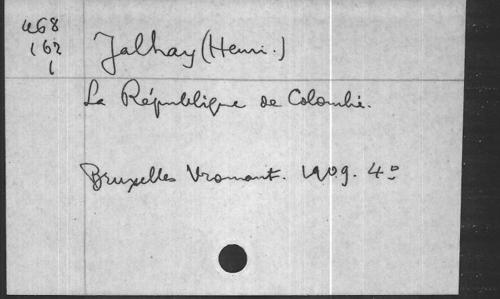 468
162
1
Jalhay (Henri.)
La République de Colombie.
Bruxelles Vromant. 1909. 4º